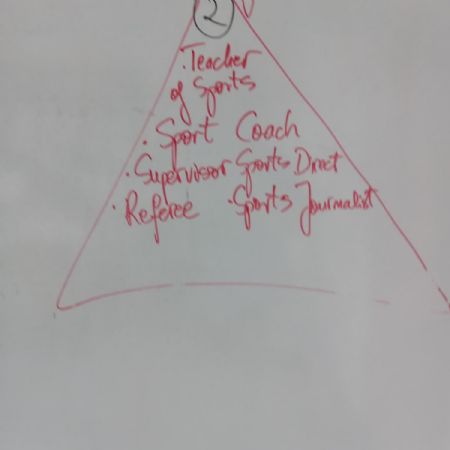 2
· Teacher
of Sports
· Sport Coach
· Supervisor Sports Direct
· Referee · Sports Journalist